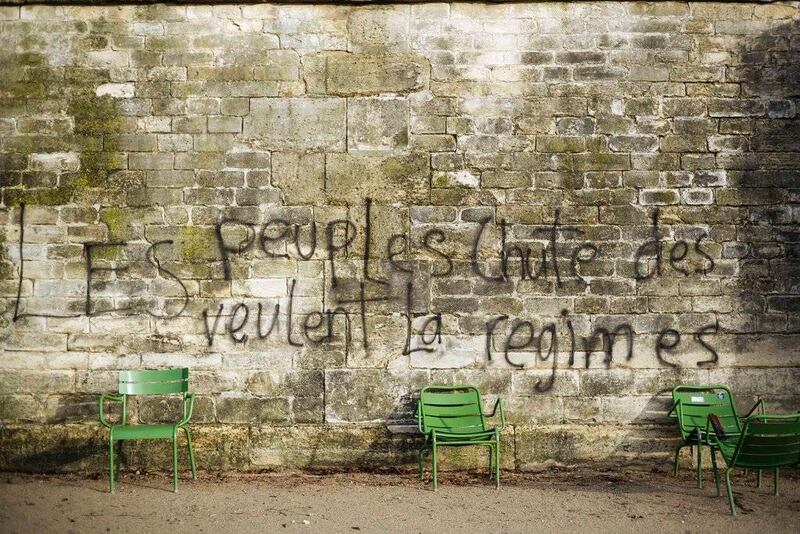 LES peuples Chute des
veulent la regimes